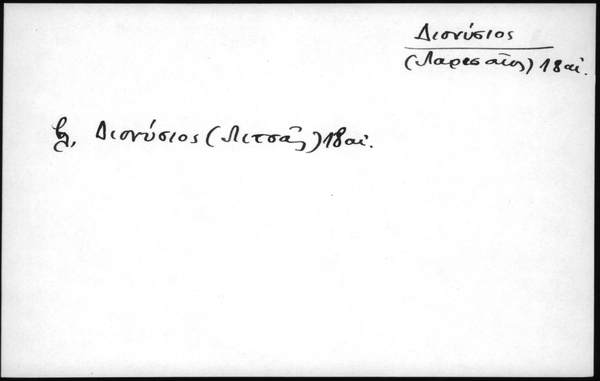 Διονύσιος
(Λαρισαῖος) 18 αἰ.
βλ. Διονύσιος (Λιτσᾶς) 18 αἰ.